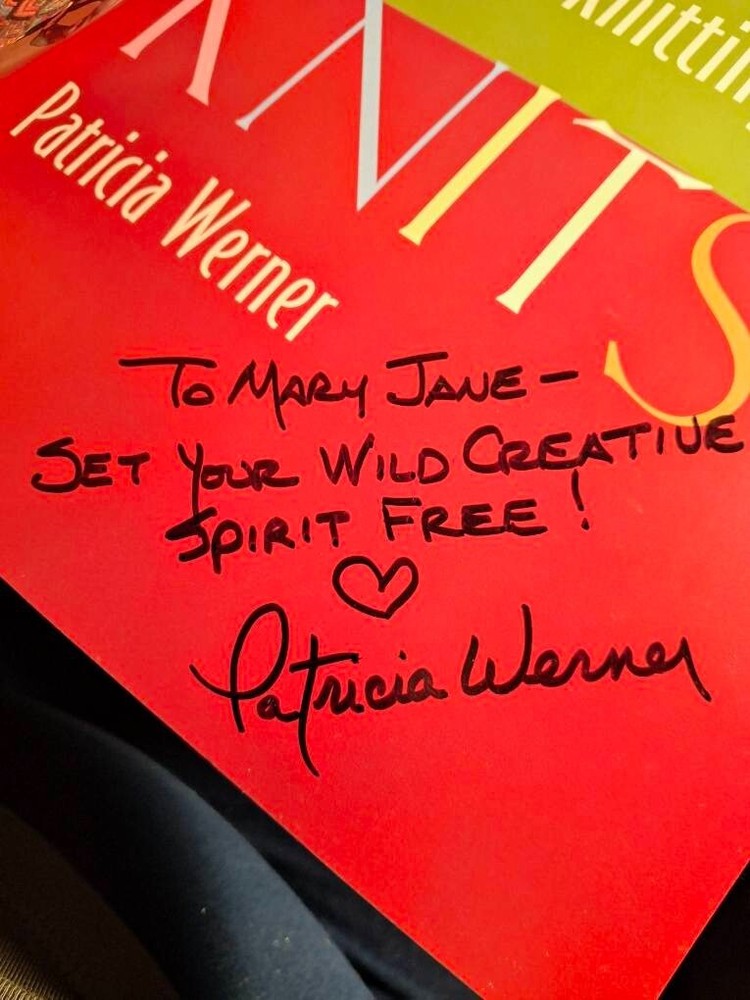 knittin
KNITS
Patricia Werner
TO MARY JANE –
SET YOUR WILD CREATIVE
SPIRIT FREE!
♡
Patricia Werner